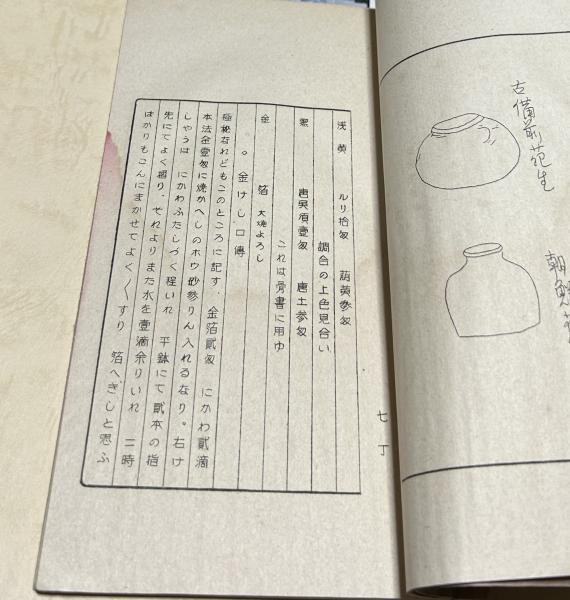 古備前花生
朝鮮
浅黄 ルリ拾匁 萌黄参匁
調合の上色見合い
黒 唐呉須壹匁 唐土参匁
これは骨書に用ゆ
金 箔 大焼よろし
。金けし口傳
極秘なれどもこのところに記す。金箔貳匁 にかわ貳滴
本法金壹匁に焼かへしのホウ砂参りん入れるなり。右け
しやうは にかわふたしづく程いれ 平鉢にて貳本の指
先にてよく摺り、それよりまた水を壹滴余りいれ 二時
ばかりもこんにまかせてよく〱すり 箔へぎしと思ふ
七丁